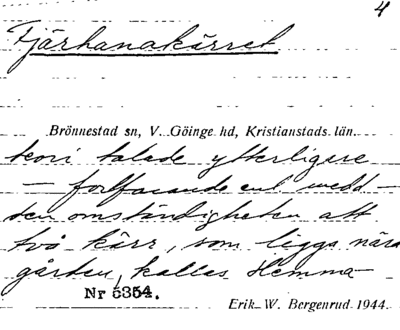 4
Tjärhanakärret
Brönnestad sn, V. Göinge hd, Kristianstads län.
teori talade ytterligare
— fortfarande enl. medd —
den omständigheten att
två kärr, som ligga nära
gården, kallas Hemma-
Nr 5354.
Erik W. Bergenrud 1944.